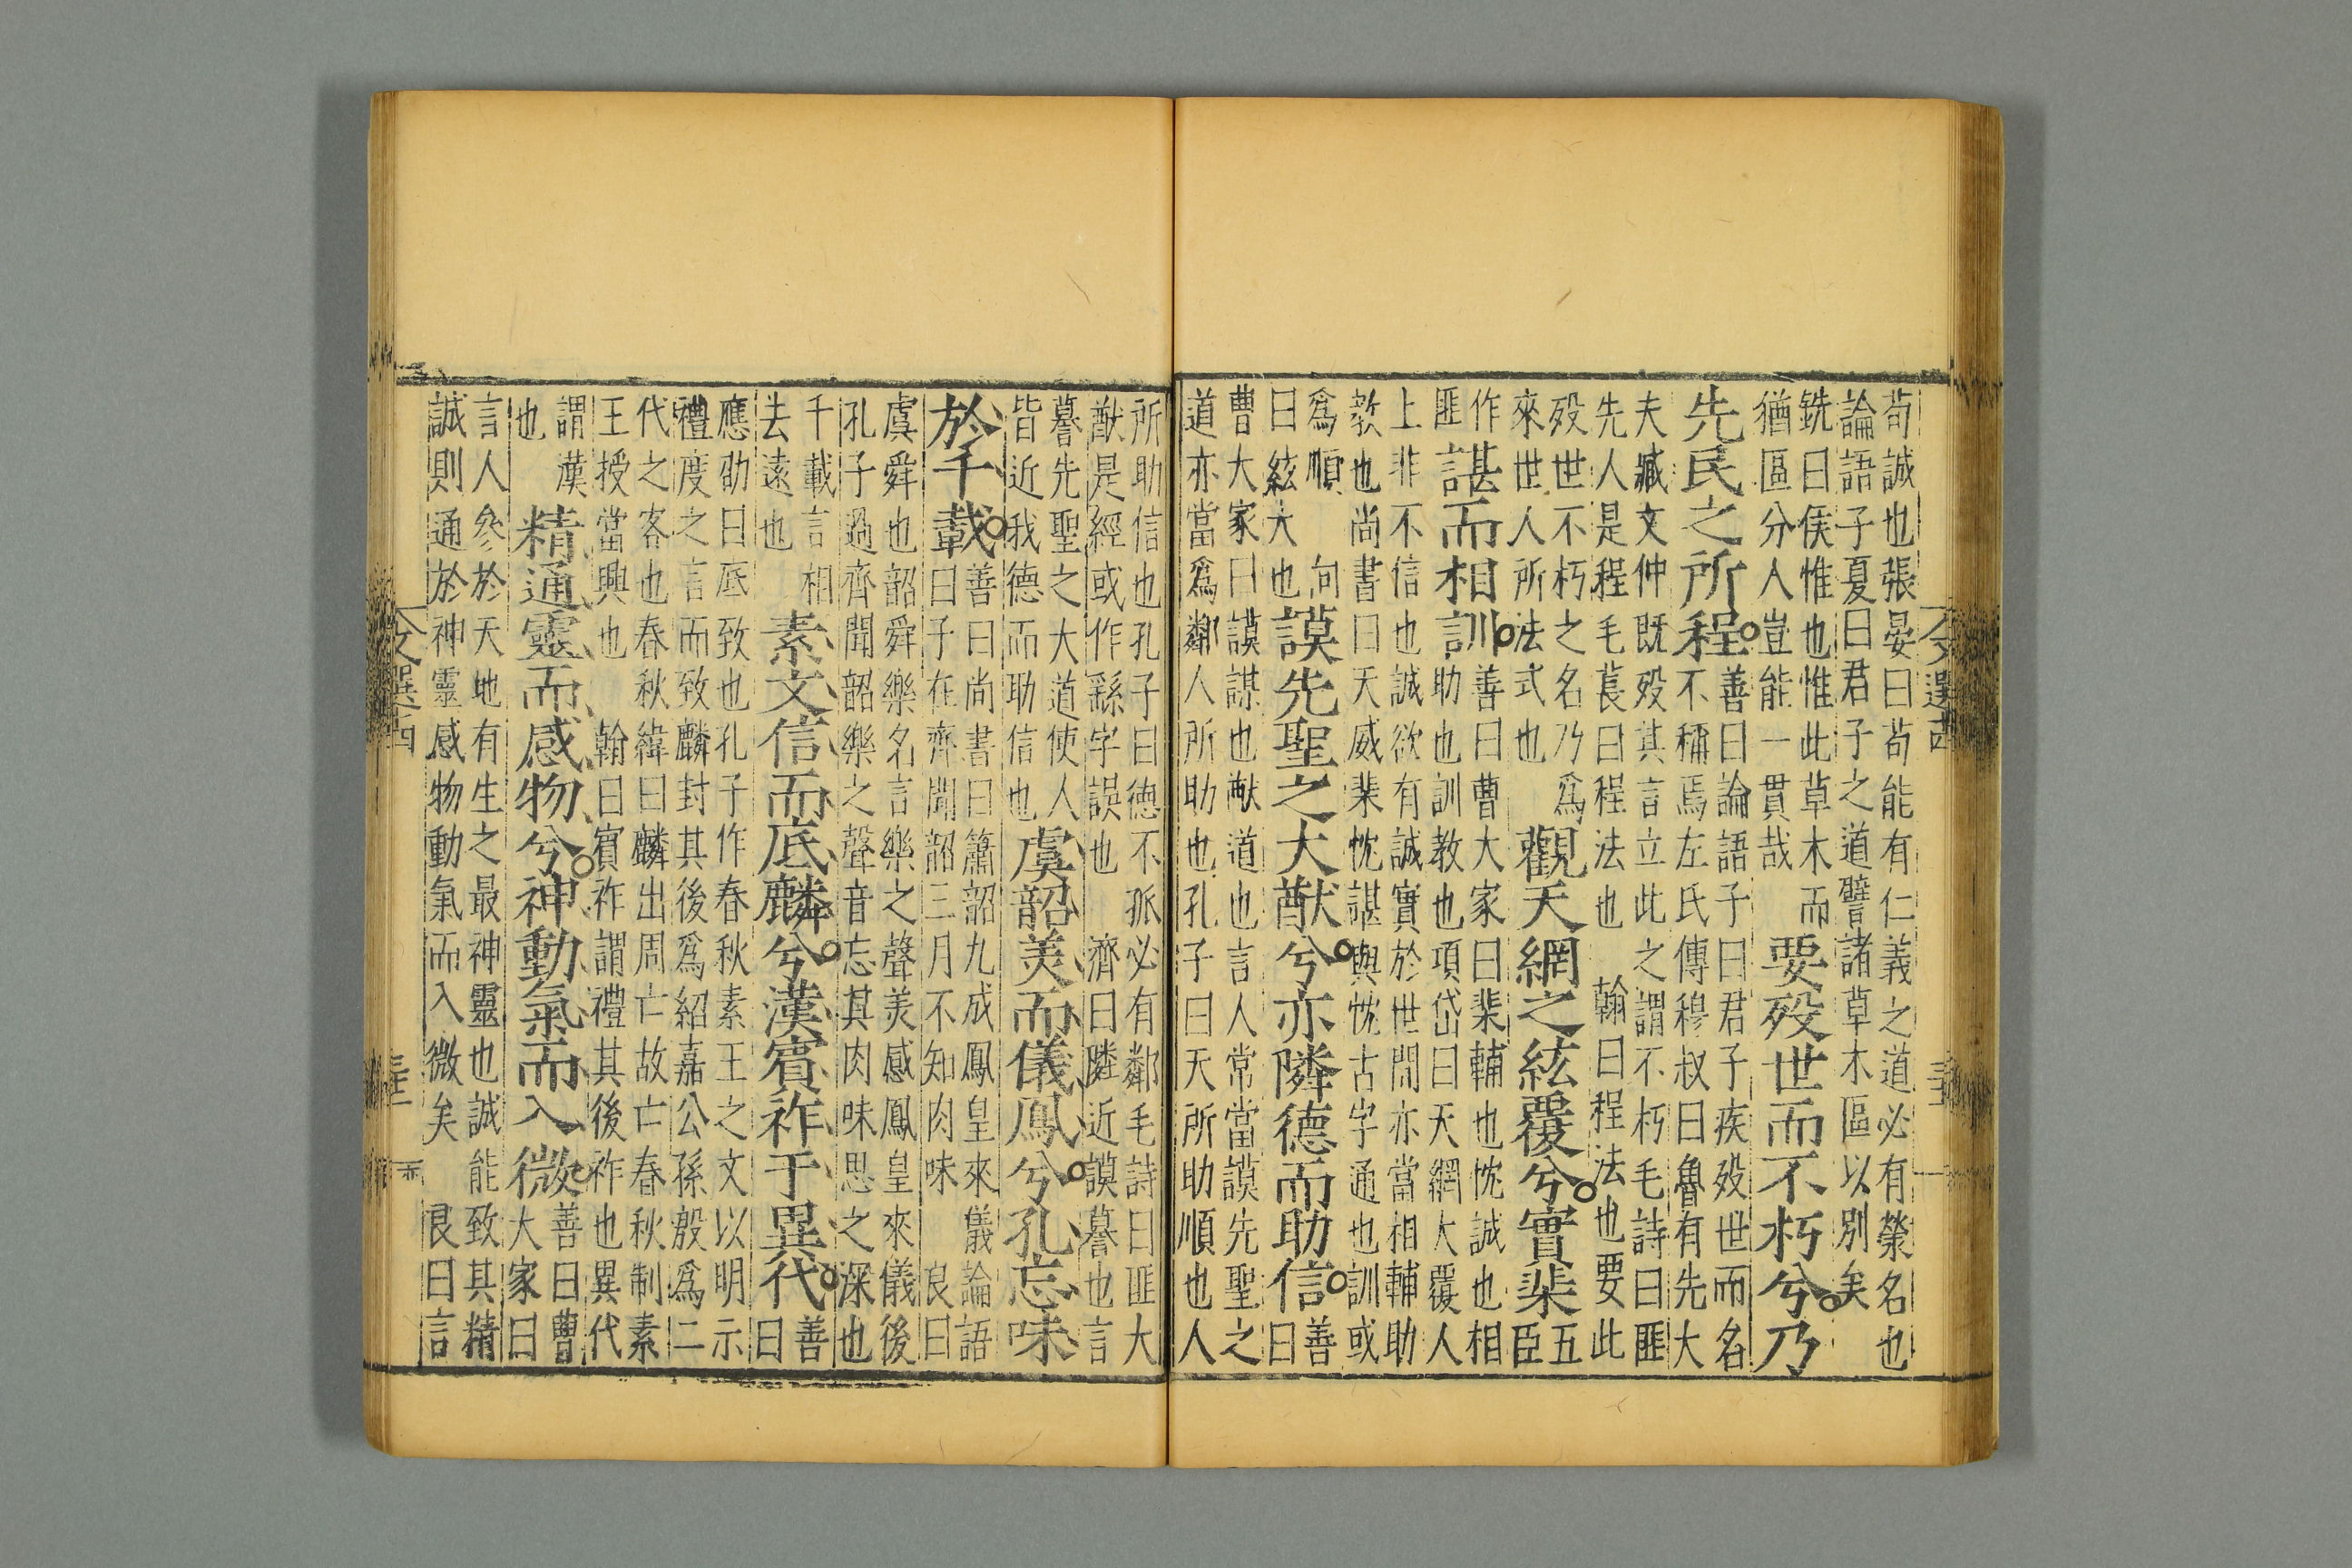 苟誠也張晏曰苟能有仁義之道必有榮名也
論語子夏曰君子之道譬諸草木區以別矣
銑曰俟惟也惟此草木而
猶區分人豈能一貫哉
要殁世而不朽兮乃
先民之所程
善曰論語子曰君子疾殁世而名
不稱焉左氏傳穆叔曰魯有先大
夫臧文仲既殁其言立此之謂不朽毛詩曰匪
先人是程毛萇曰程法也 翰曰程法也要此
殁世不朽之名乃爲
來世人所法式也
觀天網之紘覆兮實棐
五
臣
作
匪
諶而相訓
善曰曹大家曰棐輔也忱誠也相
助也訓教也項岱曰天網大覆人
上非不信也誠欲有誠實於世間亦當相輔助
教也尚書曰天威棐忱諶與忱古字通也訓或
爲順 向
曰紘大也
謨先聖之大猷兮亦隣德而助信
善
曰
曹大家曰謨謀也猷道也言人常當謨先聖之
道亦當爲鄰人所助也孔子曰天所助順也人
所助信也孔子曰德不孤必有鄰毛詩曰匪大
猷是經或作繇字誤也 濟曰隣近謨謩也言
謩先聖之大道使人
皆近我德而助信也
虞韶美而儀鳳兮孔忘味
於千載
善曰尚書曰簫韶九成鳳皇來儀論語
曰子在齊聞韶三月不知肉味 良曰
虞舜也韶舜樂名言樂之聲美感鳳皇來儀後
孔子過齊聞韶樂之聲音忘其肉味思之深也
千載言相
去遠也
素文信而底麟兮漢賓祚于異代
善
曰
應劭曰底致也孔子作春秋素王之文以明示
禮度之言而致麟封其後爲紹嘉公孫殷爲二
代之客也春秋緯曰麟出周亡故亡春秋制素
王授當興也 翰曰賓祚謂禮其後祚也異代
謂漢
也
精通靈而感物兮神動氣而入微
善曰曹
大家曰
言人參於天地有生之最神靈也誠能致其精
誠則通於神靈感物動氣而入微矣 良曰言
文選